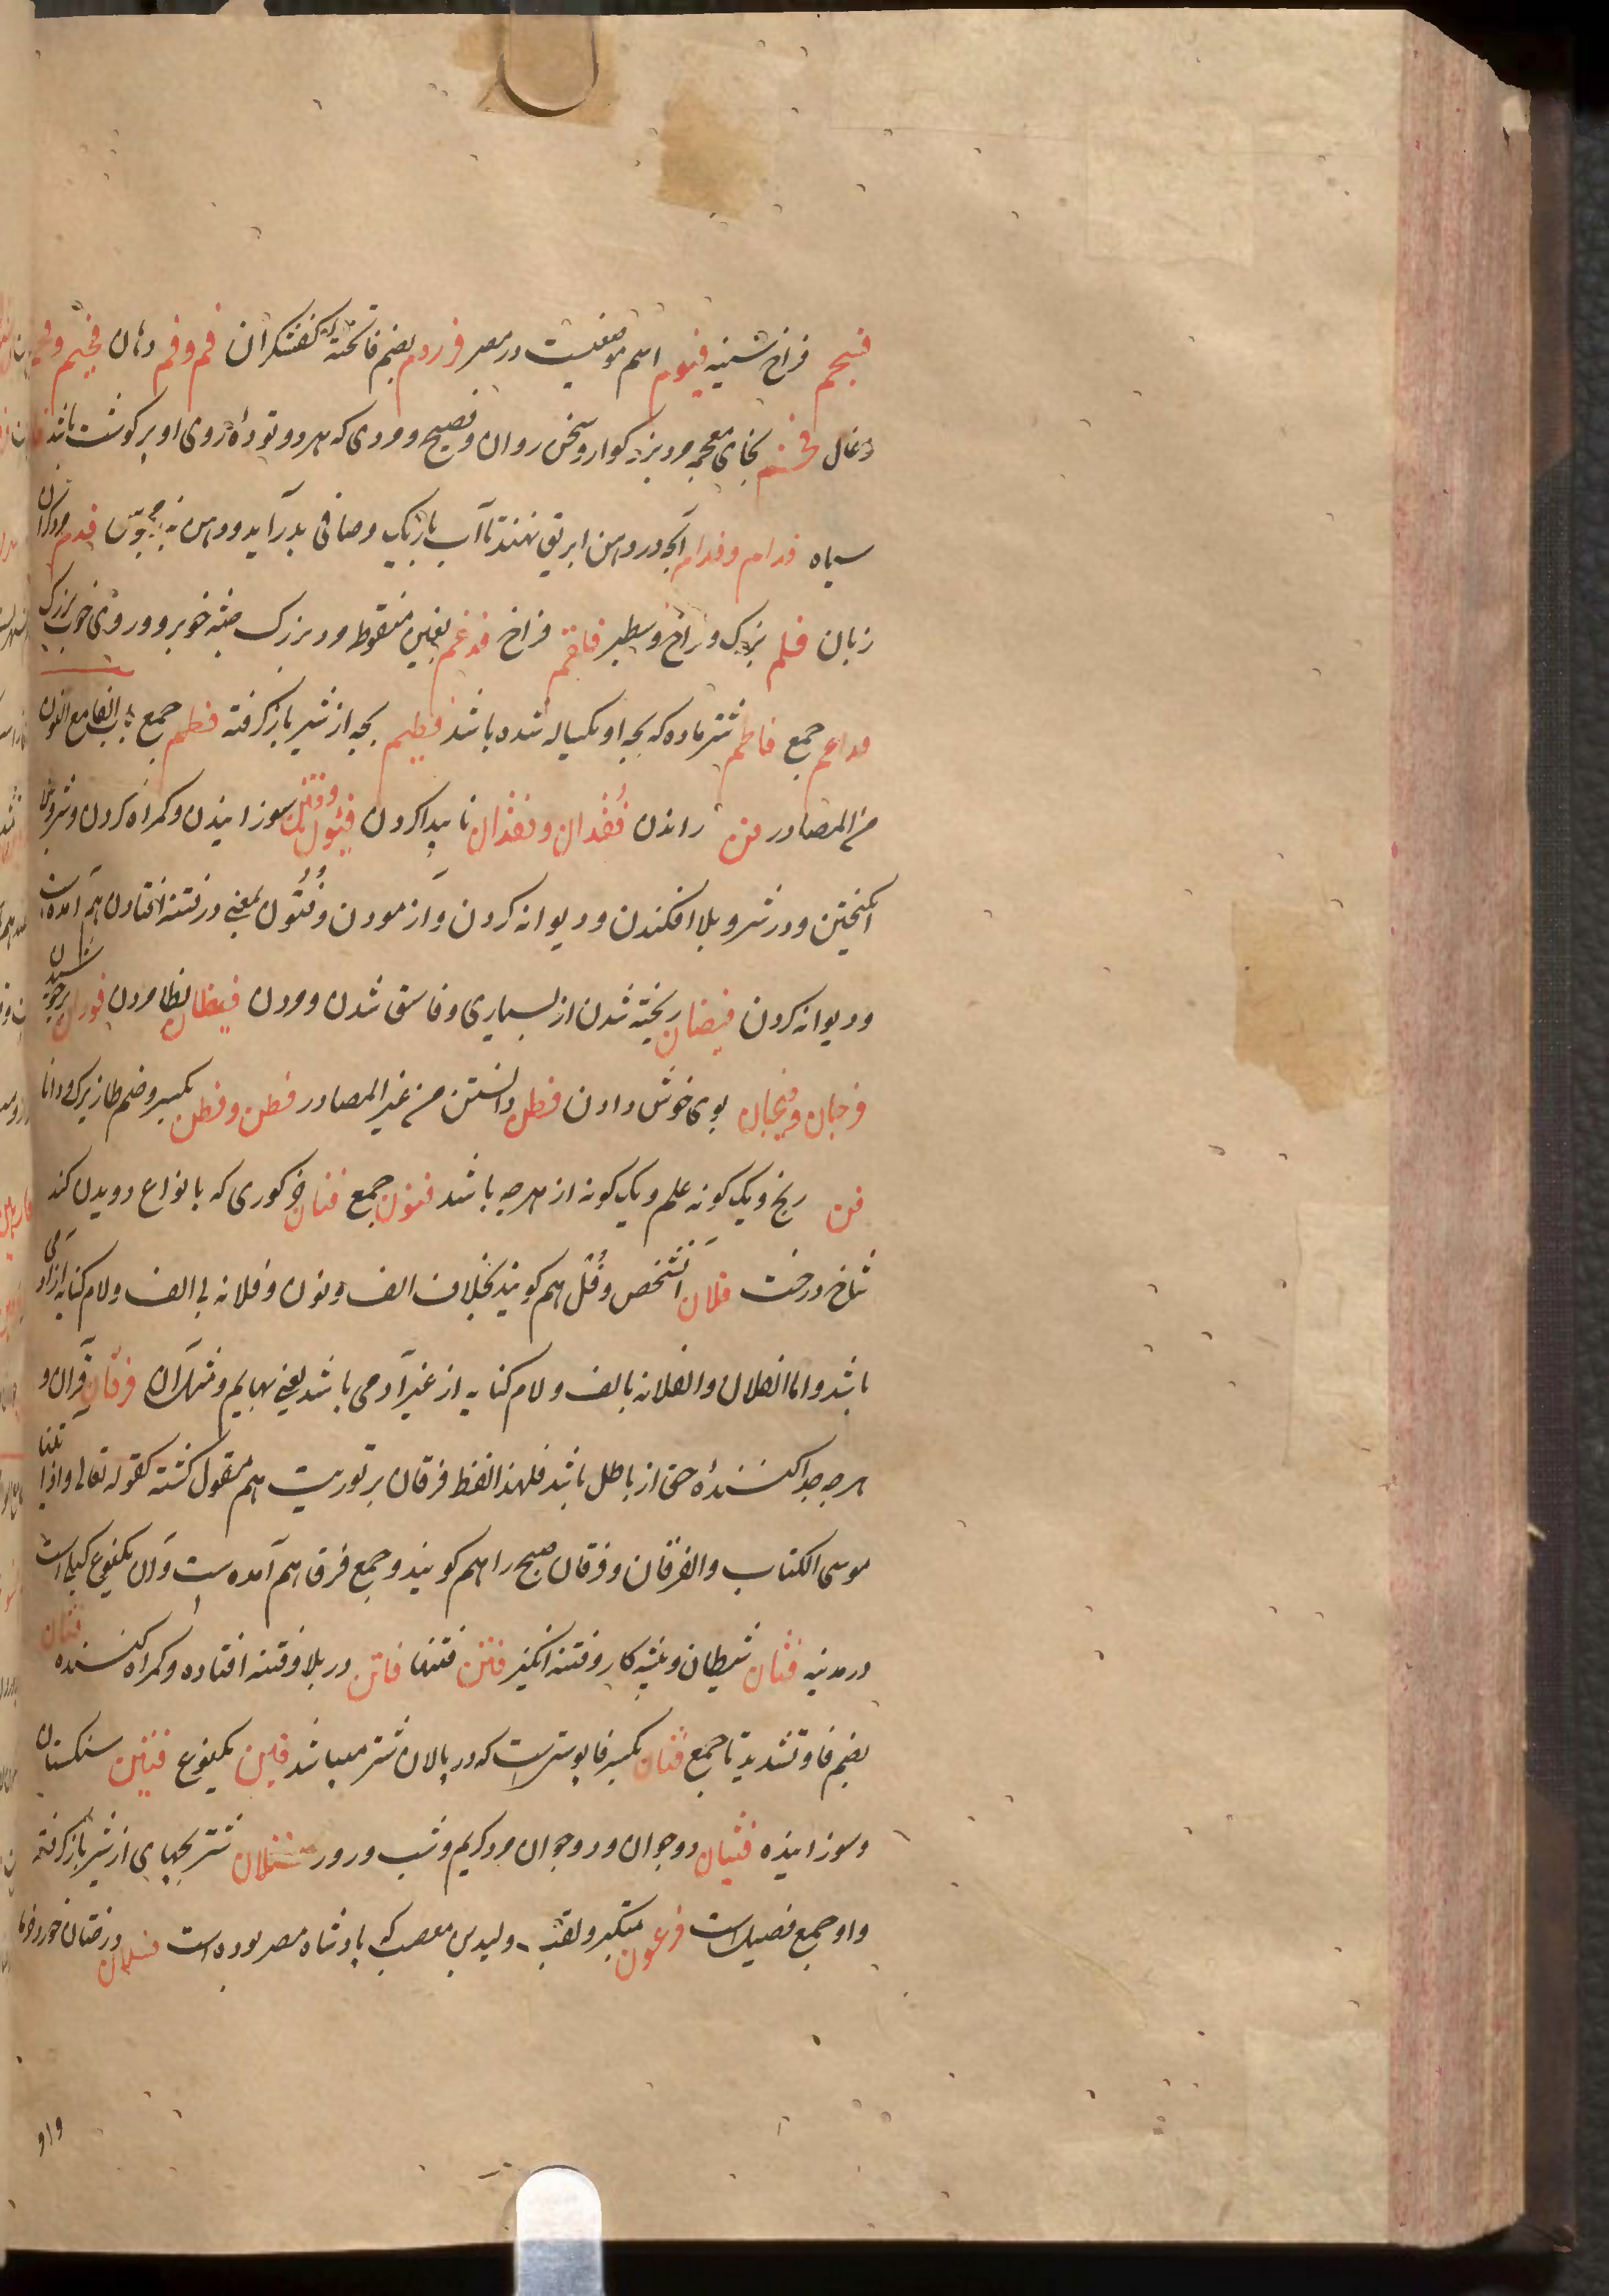 فیجم فراخ شینه فیوم اسم موضعیست در مصر فرزوم بضم فا تختهٔ کفشکران فم و فم دهان فحیم و فحم
دغال فخم بخای معجمه مرد بزرکوار و سخن روان و فصیح و مردی که هر دو تودهٔ روی او پر کوشت باشد
سیاه فدام و فدام آنچه در دهن ابریق نهند تا آب باریک و صافی بدر آید و دهن بند مجوس فدم مرد کران
زبان فلم بزرک و فراخ و سطبر فاقم فراخ فدغم بغین منقوط مرد بزرک جثه خوبرو و روی خوب بزرک
فداغم جمع فاطم شتر ماده که بچه او یکساله شده باشد فطیم بچه از شیر باز کرفته فطم جمع باب الفا مع النون
من المصادر فن راندن فقدان و فقدان ناپیدا کردن فتون و فتن سوزانیدن و کمراه کردن و شر و فتنه
انکیختن و در شر و بلا افکندن و دیوانه کردن و آزمودن و فتون بمعنی در فتنه افتادن هم آمده است
و دیوانه کردن فیضان ریخته شدن از بسیاری و فاش شدن و مردن فیظان بظا مردن فوران بر جوشیدن
فوحان و فیحان بوی خوش دادن فطن دانستن من غیر المصادر فطن و فطن بکسر و ضم طا زیرک و دانا
فن رنج و یک کونه علم و یک کونه از هر چه باشد فنون جمع فنان خر کوری که بانواع دویدن کند
شاخ درخت فلان آنشخص و فل هم کویند بخلاف الف و نون و فلانه بی الف و لام کنایه از آدمی
باشد و اما الفلان و الفلانه بالف و لام کنایه از غیر آدمی باشد یعنی بهایم و مثل آن فرقان قرآن و
هر چه جدا کنندهٔ حق از باطل باشد فلهذا لفظ فرقان بر توریت هم منقول کشته کقوله تعالی و اذ آتینا
موسی الکتاب والفرقان و فرقان صبح را هم کویند و جمع فرق هم آمده است و آن یکنوع کیل است
در مدینه فتان شیطان و پیشه کار و فتنه انکیز فتن فتنها فاتن در بلا و فتنه افتاده و کمراه کننده فتان
بضم فا و تشدید تا جمع فتان بکسر فا پوستست که در پالان شتر میباشد فین یکنوع فتین سنکستان
و سوزانیده فتیان دو جوان و دو جوان مرد کریم و شب و روز فصلان شتر بچهای از شیر باز کرفته
و او جمع فصیل است فرعون متکبر و لقب ولید بن مصعب که پادشاه مصر بوده است فسلان درختان خورد خرما
واو